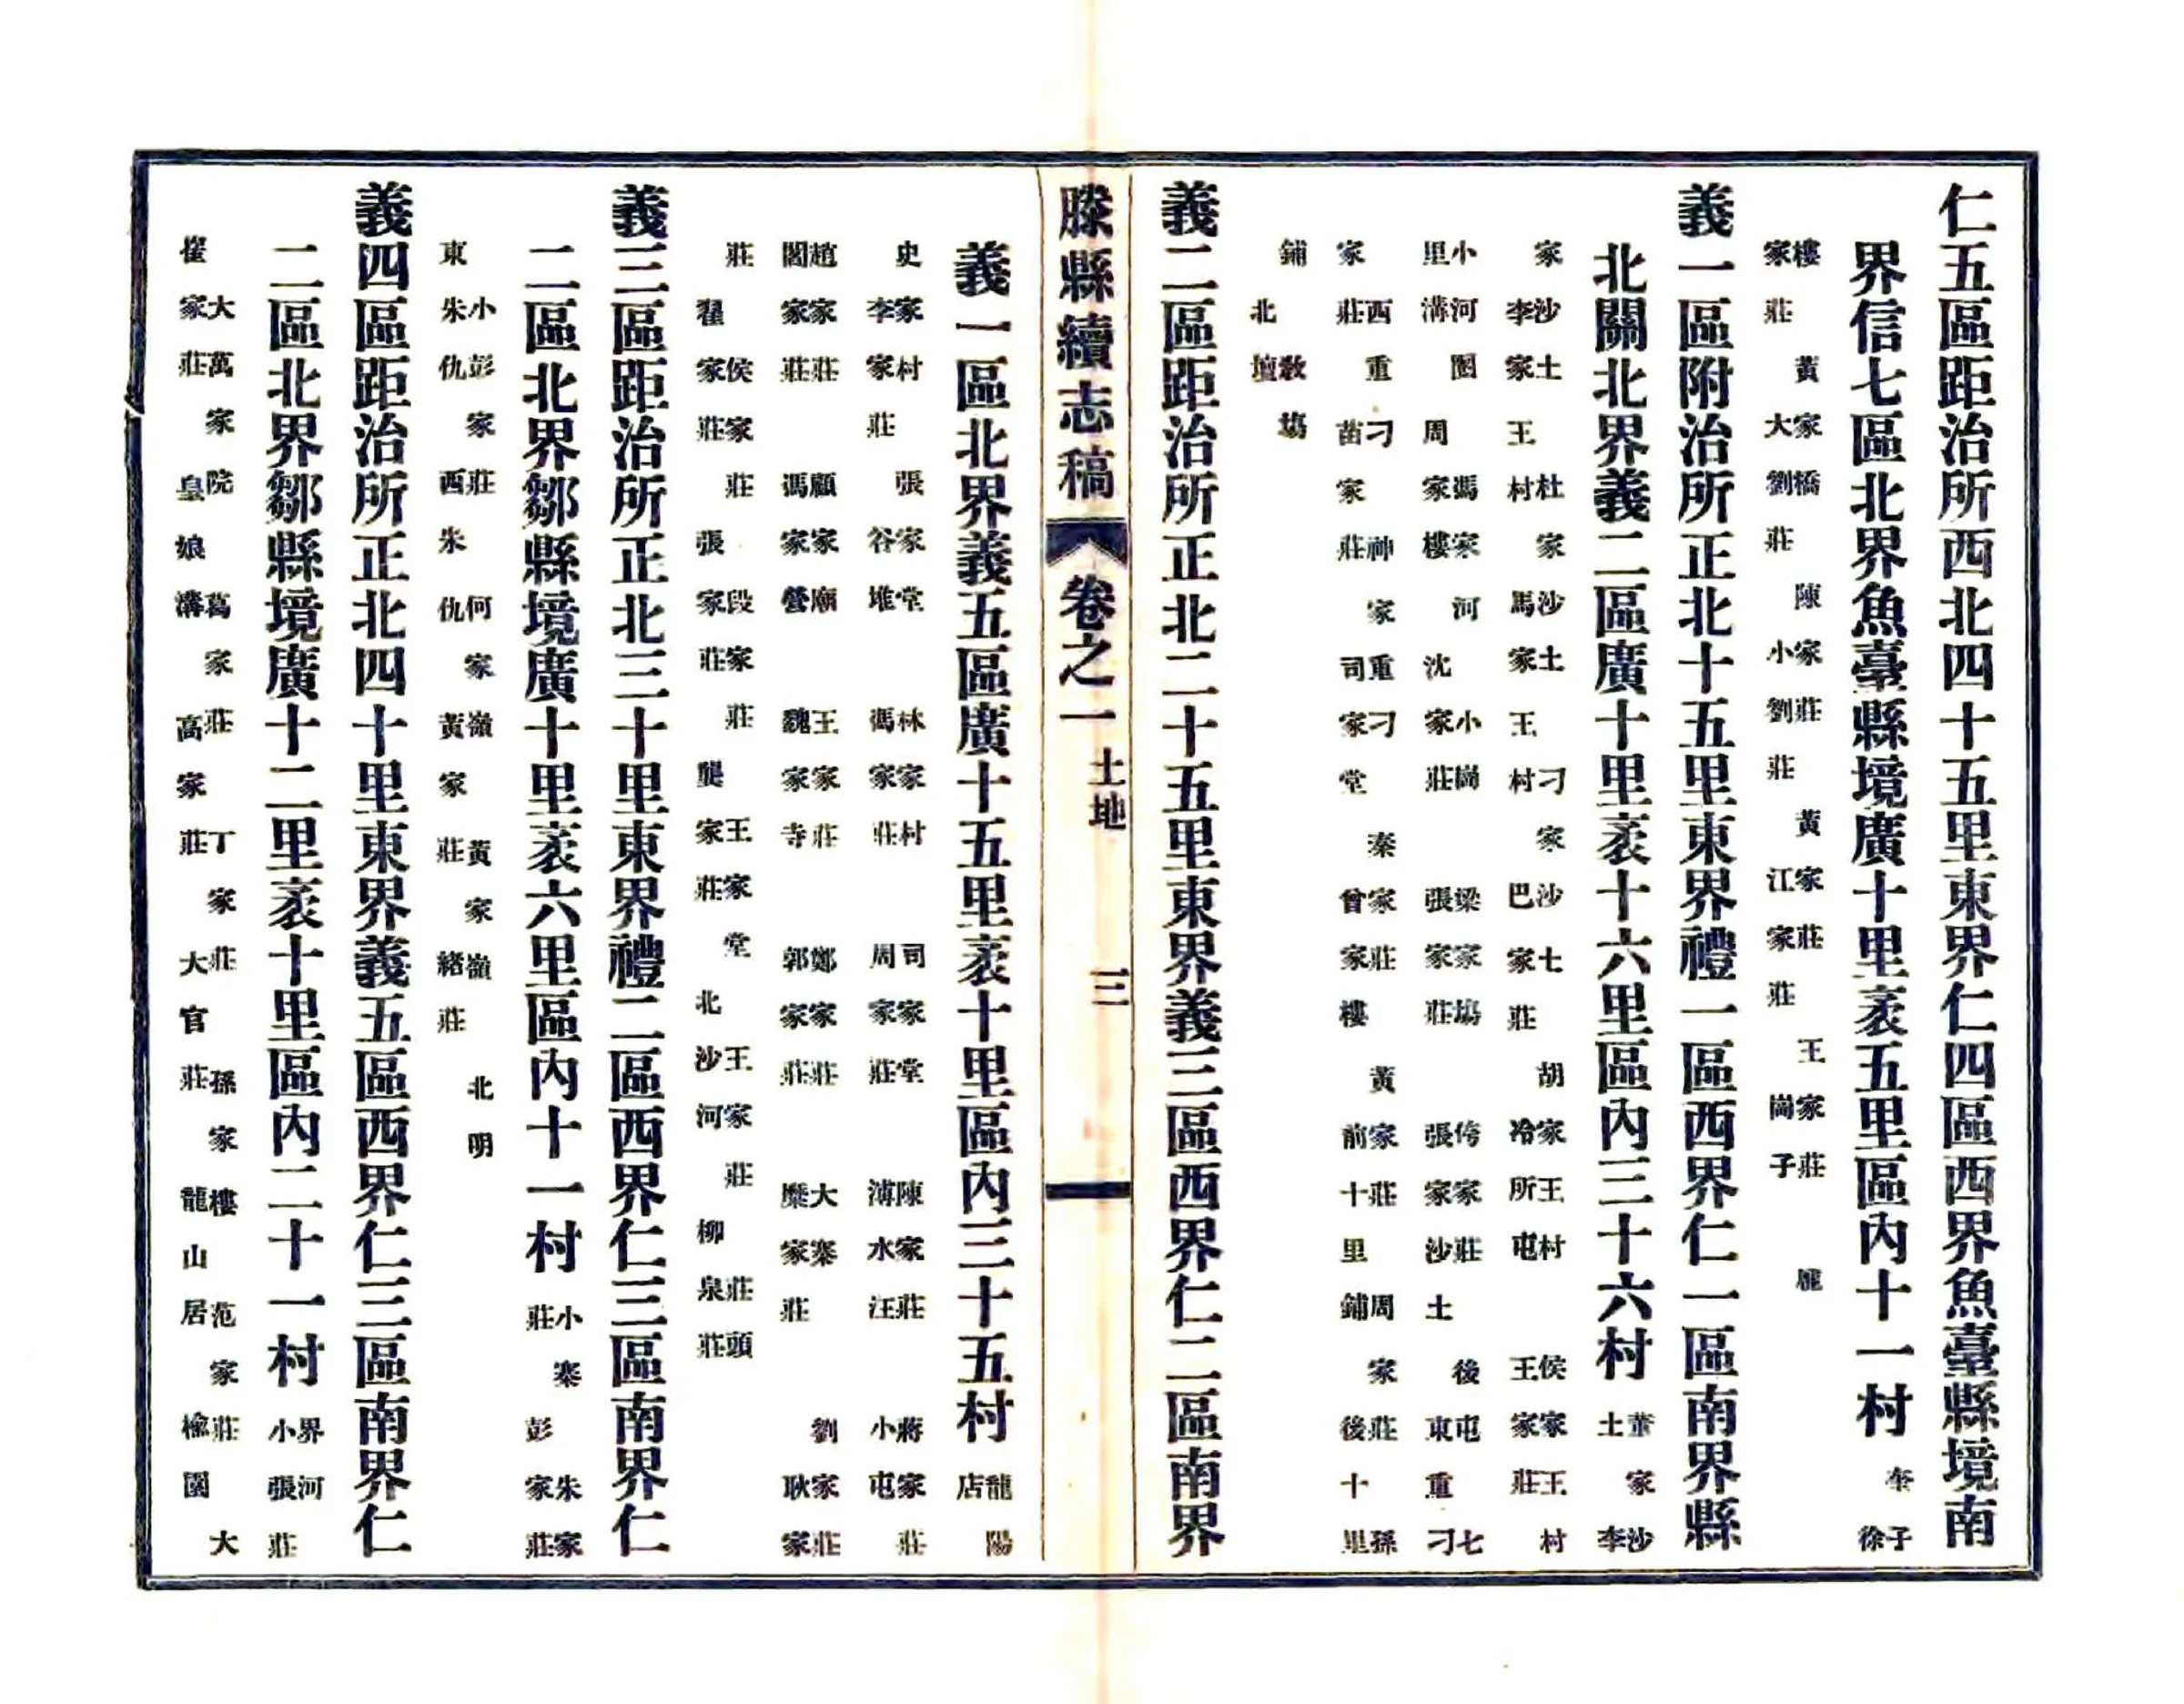 仁五區距治所西北四十五里東界仁四區西界魚臺縣境南
界信七區北界魚臺縣境廣十里袤五里區內十一村 奎子 徐
樓 家莊 黃家橋 大劉莊 陳家莊 小劉莊 黃家莊 江家莊 王家莊 崗子 龍
義一區附治所正北十五里東界禮一區西界仁一區南界縣
北關北界義二區廣十里袤十六里區內三十六村 董家沙土 李
家沙土 李家王村 杜家沙土 馬家王村 刁家沙七 巴家莊 胡家王村 冷所屯 侯家王村 王家莊
小河圈 里溝 馮家河 周家樓 小崗 沈家莊 梁家塲 張家莊 侉家莊 張家沙土 後屯七 東重刁
西重刁 家莊 神家重刁 苗家莊 秦家莊 司家堂 黃家莊 曾家樓 周家莊 前十里鋪 孫 後十里
鋪 教塲 北壇
義二區距治所正北二十五里東界義三區西界仁二區南界
滕縣續志稿 卷之一 土地 三
義一區北界義五區廣十五里袤十里區內三十五村 龍陽店
史家村 李家莊 張家堂 谷堆 林家村 馮家莊 司家堂 周家莊 陳家莊 溥水汪 蔣家莊 小屯
趙家莊 閣家莊 顧家廟 馮家營 王家莊 魏家寺 鄭家莊 郭家莊 大寨 糜家莊 劉家莊 耿家
莊 侯家莊 翟家莊 段家莊 張家莊 王家堂 龔家莊 王家莊 北沙河 莊頭 柳泉莊
義三區距治所正北三十里東界禮二區西界仁三區南界仁
二區北界鄒縣境廣十里袤六里區內十一村 小寨莊 朱家 彭家莊
小彭家莊 東朱仇 何家嶺 西朱仇 黃家嶺 黃家莊 北明 緒莊
義四區距治所正北四十里東界義五區西界仁三區南界仁
二區北界鄒縣境廣十二里袤十里區內二十一村 界河 小張莊
大萬家院 崔家莊 葛家莊 皇娘溝 丁家莊 高家莊 孫家樓 大官莊 范家莊 龍山居 大 楡園